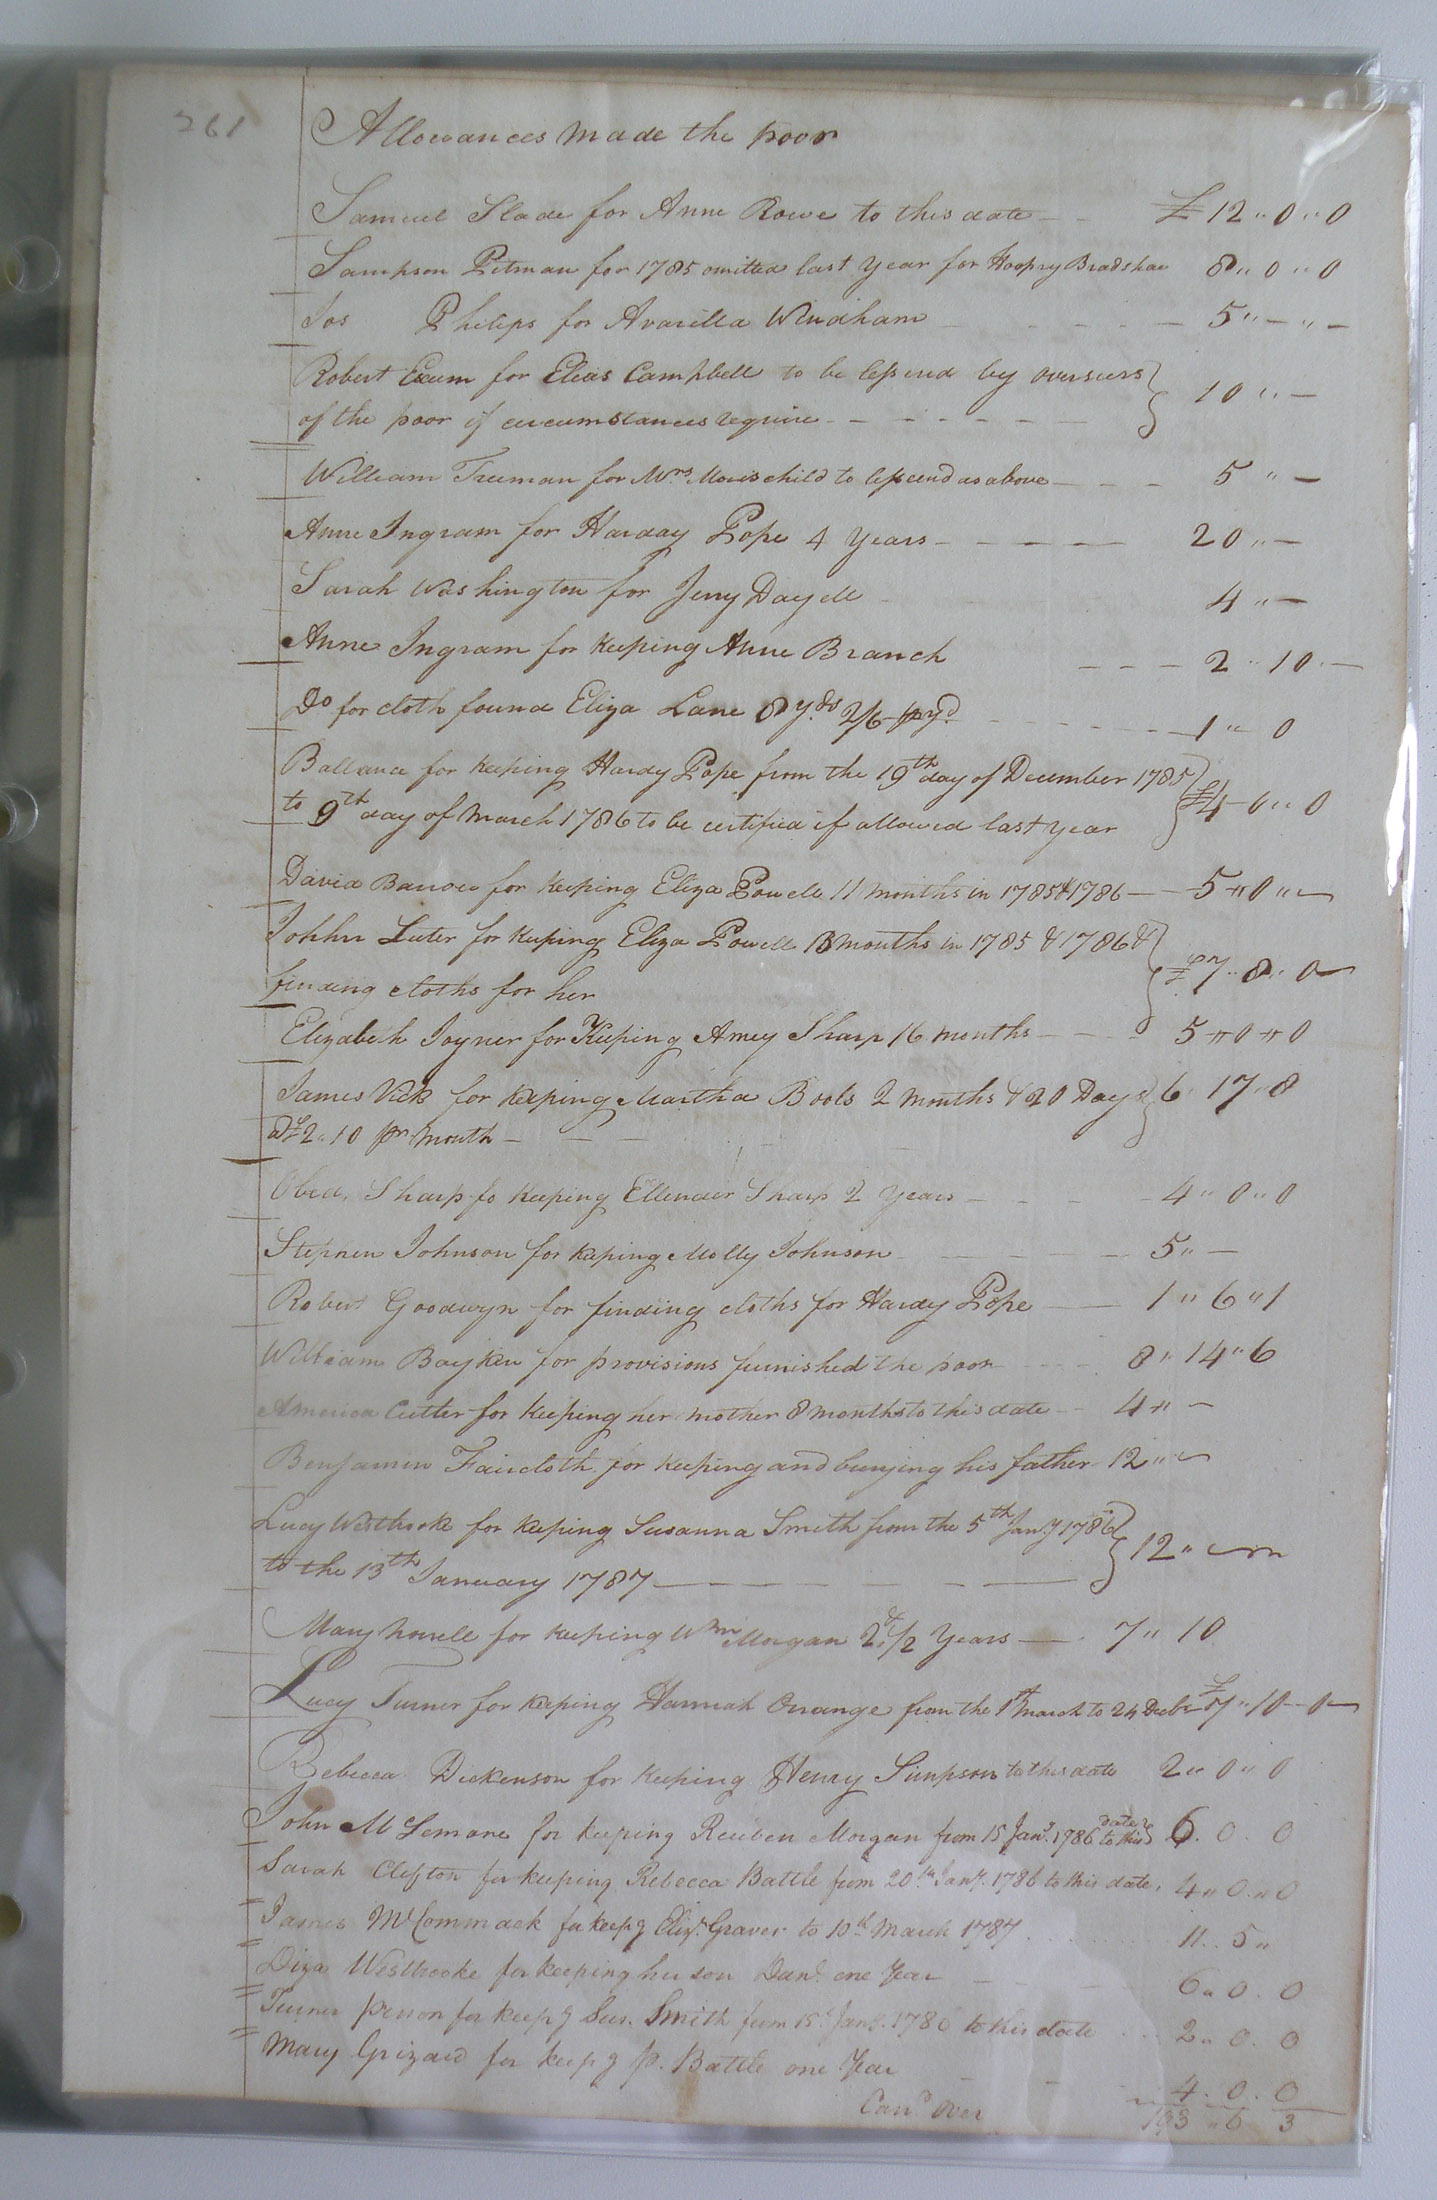 261
Allowances made the poor
Samuel Slade for Anne Rowe to this date £ 12 " 0 " 0
Sampson Pitman for 1785 omitted last year for Hoopsy Bradshaw 8 " 0 " 0
Jos Philips for Avarilla Windham 5 " - " -
Robert Exum for Elias Campbell to be lessened by overseers
of the poor if circumstances require - - - - - - 10 " -
William Truman for Mrs. child to lessened as above - - - 5 " -
Anne Ingram for Harday Pope 4 Years - - - - - 20 " -
Sarah Washington for Jerry Dayell 4 " -
Anne Ingram for Keeping Anne Branch - - - 2 " 10 " -
Do for cloth found Eliza Lane 8 yds 2/6 pr yd - - - - 1 " 0
Ballance for keeping Hardy Pope from the 19th day of December 1785
to 9th day of March 1786 to be certified if allowed last year £4 - 0 " 0
David Barrow for keeping Eliza Powell 11 months in 1785 & 1786 - - 5 " 0 " -
Johhn Luter for keeping Eliza Powell 13 months in 1785 & 1786 &
finding cloths for her £7 " 8 " 0
Elizabeth Joyner for Keeping Amey Sharp 16 months - - - 5 " 0 " 0
James Vick for keeping Martha Bools 2 months & 20 Days 6 " 17 " 8
a £2 " 10 pr month - - -
Obed. Sharp fo keeping Ellenair Sharp 2 years - - - - 4 " 0 " 0
Stephen Johnson for keeping Molly Johnson - - - - 5 " -
Robert Goodwyn for finding cloths for Hardy Pope - - 1 " 6 " 1
William Boykin for provisions furnished the poor - - - 8 " 14 " 6
America Cutler for keeping her mother 8 months to this date - - 4 " -
Benjamin Faircloth for keeping and burying his father - 12 " -
Lucy Westbrooke for keeping Susanna Smith from the 5th Jany 1786
to the 13th January 1787 - - - - - 12 " -
Mary Newell for keeping Wm Morgan 2 & 1/2 Years - - 7 " 10
Lucy Turner for keeping Hannah Orrange from the 1st March to 24 Decbr £7 " 10 - 0
Rebecca Dickenson for keeping Henry Simpson to this date 2 " 0 " 0
John McLemore for keeping Reuben Morgan from 15 Jany. 1786 to this date 6 . 0 . 0
Sarah Clifton for keeping Rebecca Battle from 20th Jany. 1786 to this date . 4 " 0 " 0
James McCommack for keepg Eliz. Graver to 10th March 1787 . . . 11 . 5 "
Liza Westbrooke for keeping her son Danl. one Year - - - 6 " 0 . 0
Turner for keepg Sus. Smith from 15th Jany. 1786 to this date . . . 2 " 0 . 0
Mary Grizard for keepg p. Battle one Year - - 4 . 0 . 0
Card over 193 " 6 3